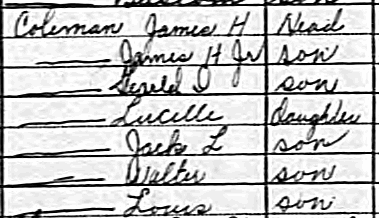 Coleman James H Head
—— James H Jr son
—— Gerald D son
—— Lucille Daughter
—— Jack L son
—— Walter son
—— Louis son